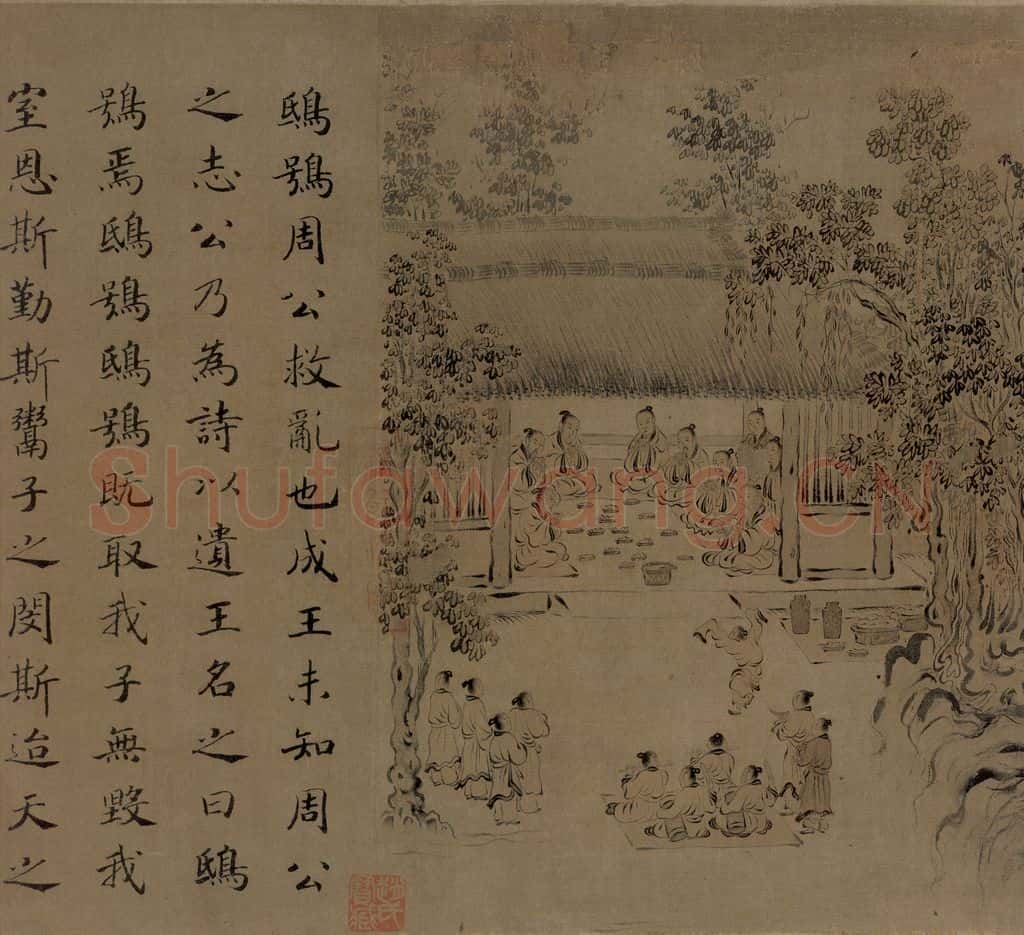 鴟鴞周公救亂也成王未知周公
之志公乃為詩以遺王名之曰鴟
鴞焉鴟鴞鴟鴞既取我子無毀我
室恩斯勤斯鬻子之閔斯迨天之
Shufawang.CN